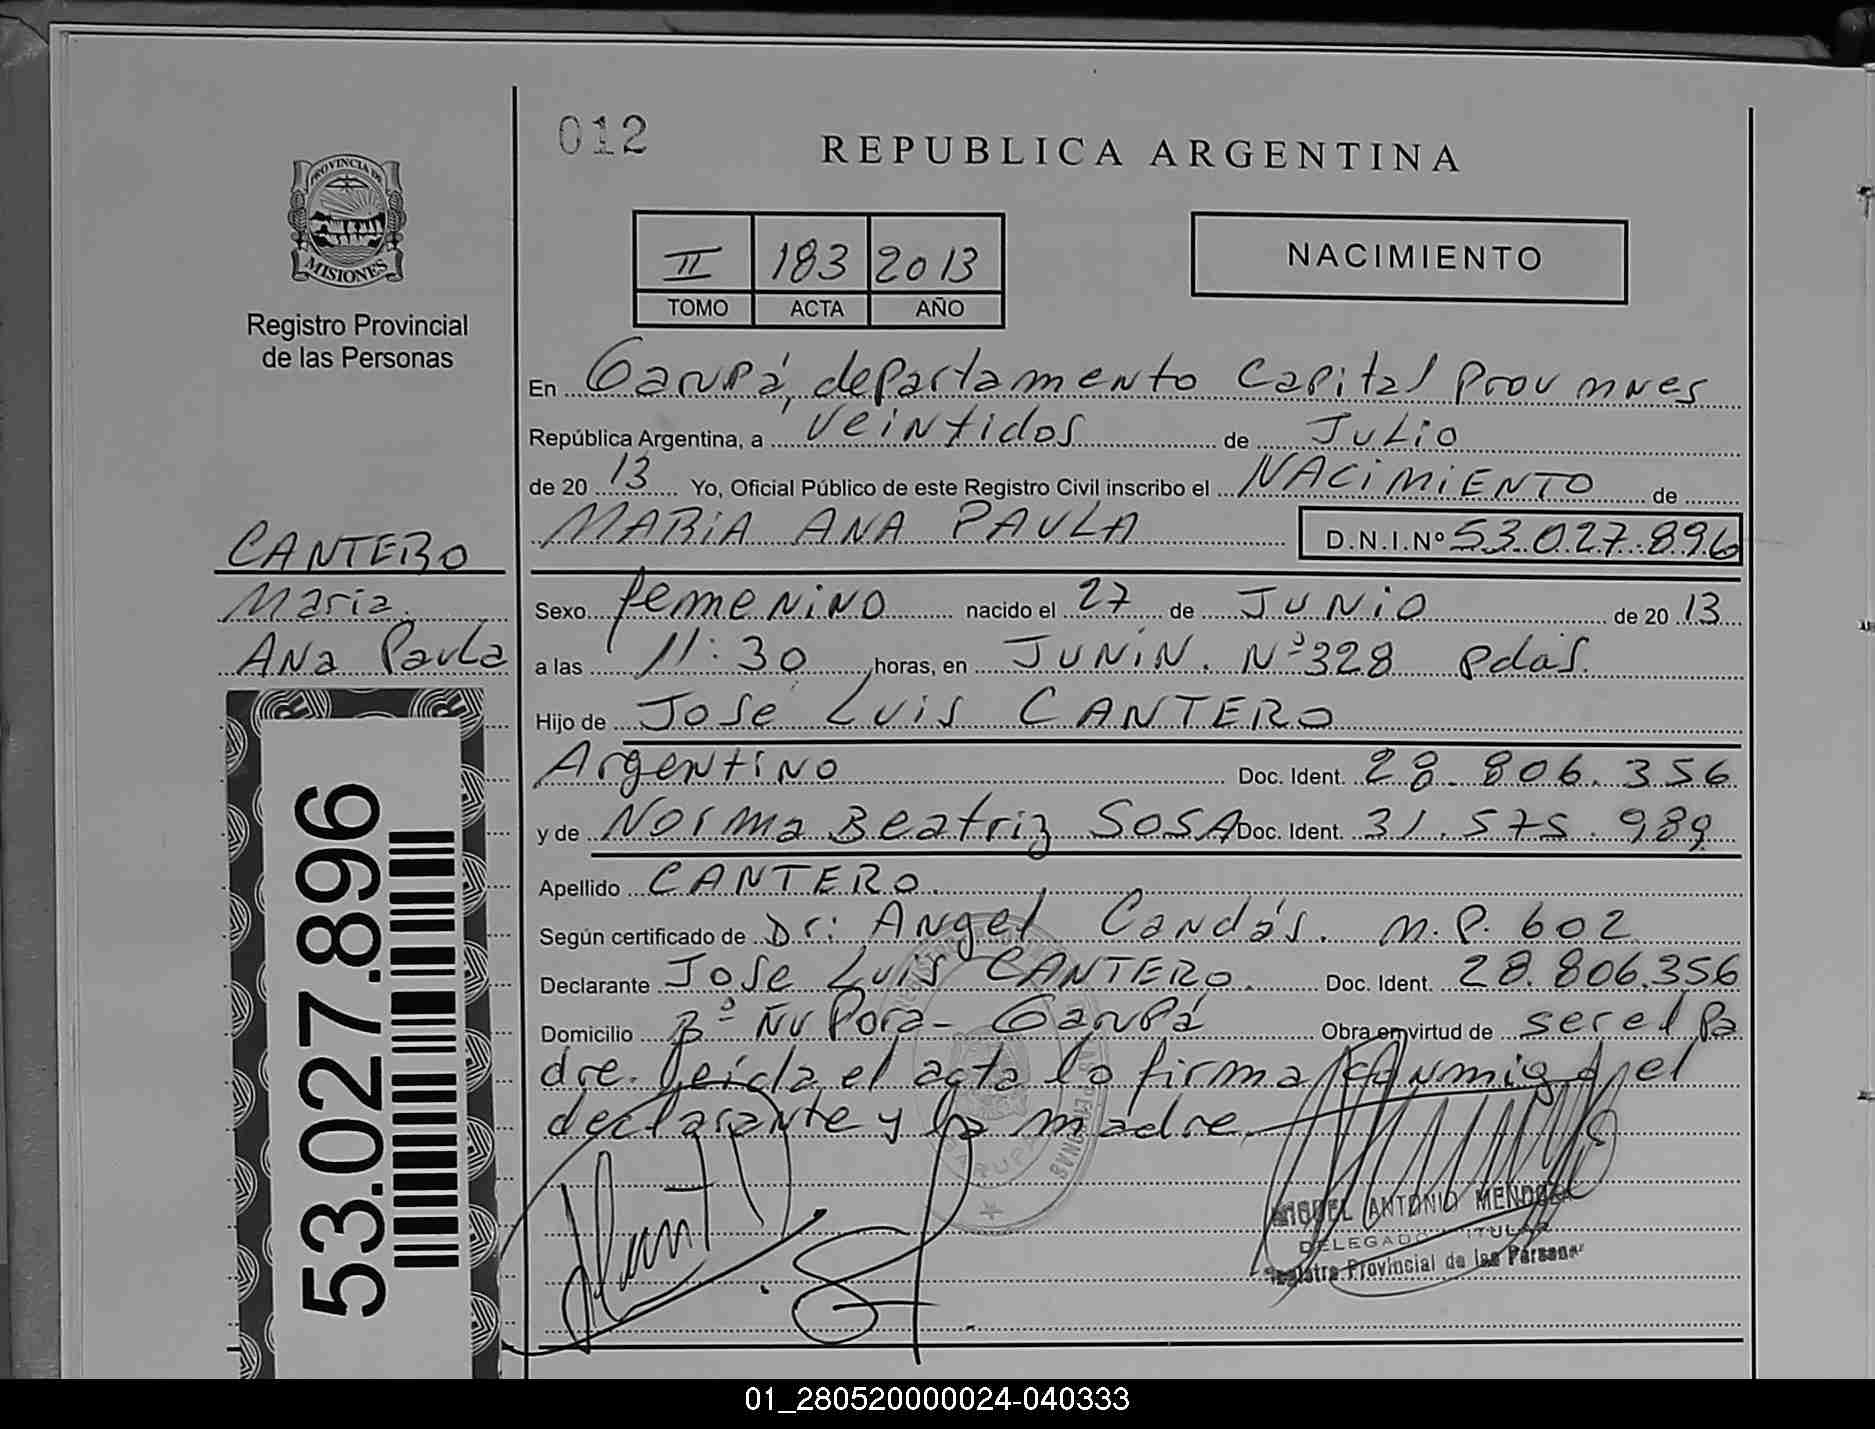 012
REPUBLICA ARGENTINA
PROVINCIA DE
MISIONES
Registro Provincial
de las Personas
II 183 2013
TOMO ACTA AÑO
NACIMIENTO
En Garupá, departamento Capital Prov mnes
República Argentina, a veintidos de Julio
de 20 13 Yo, Oficial Público de este Registro Civil inscribo el NACIMIENTO de
MARIA ANA PAULA D.N.I.Nº 53.027.896
CANTERO
Maria
Ana Paula
Sexo femenino nacido el 27 de JUNIO de 20 13
a las 11:30 horas, en JUNIN. Nº 328 Pdas.
Hijo de José Luis CANTERO
Argentino Doc. Ident. 28.806.356
y de Norma Beatriz SOSA Doc. Ident. 31.575.989
Apellido CANTERO.
Según certificado de Dr: Angel Candás. M.P. 602
Declarante José Luis CANTERO. Doc. Ident. 28.806.356
Domicilio Bº Ñu Porá - Garupá Obra en virtud de ser el Pa
dre. leida el acta la firma conmigo el
declarante y la madre
53.027.896
GARUPA
MIGUEL ANTONIO MENDOZA
DELEGADO TITULAR
Registro Provincial de las Personas
01_280520000024-040333